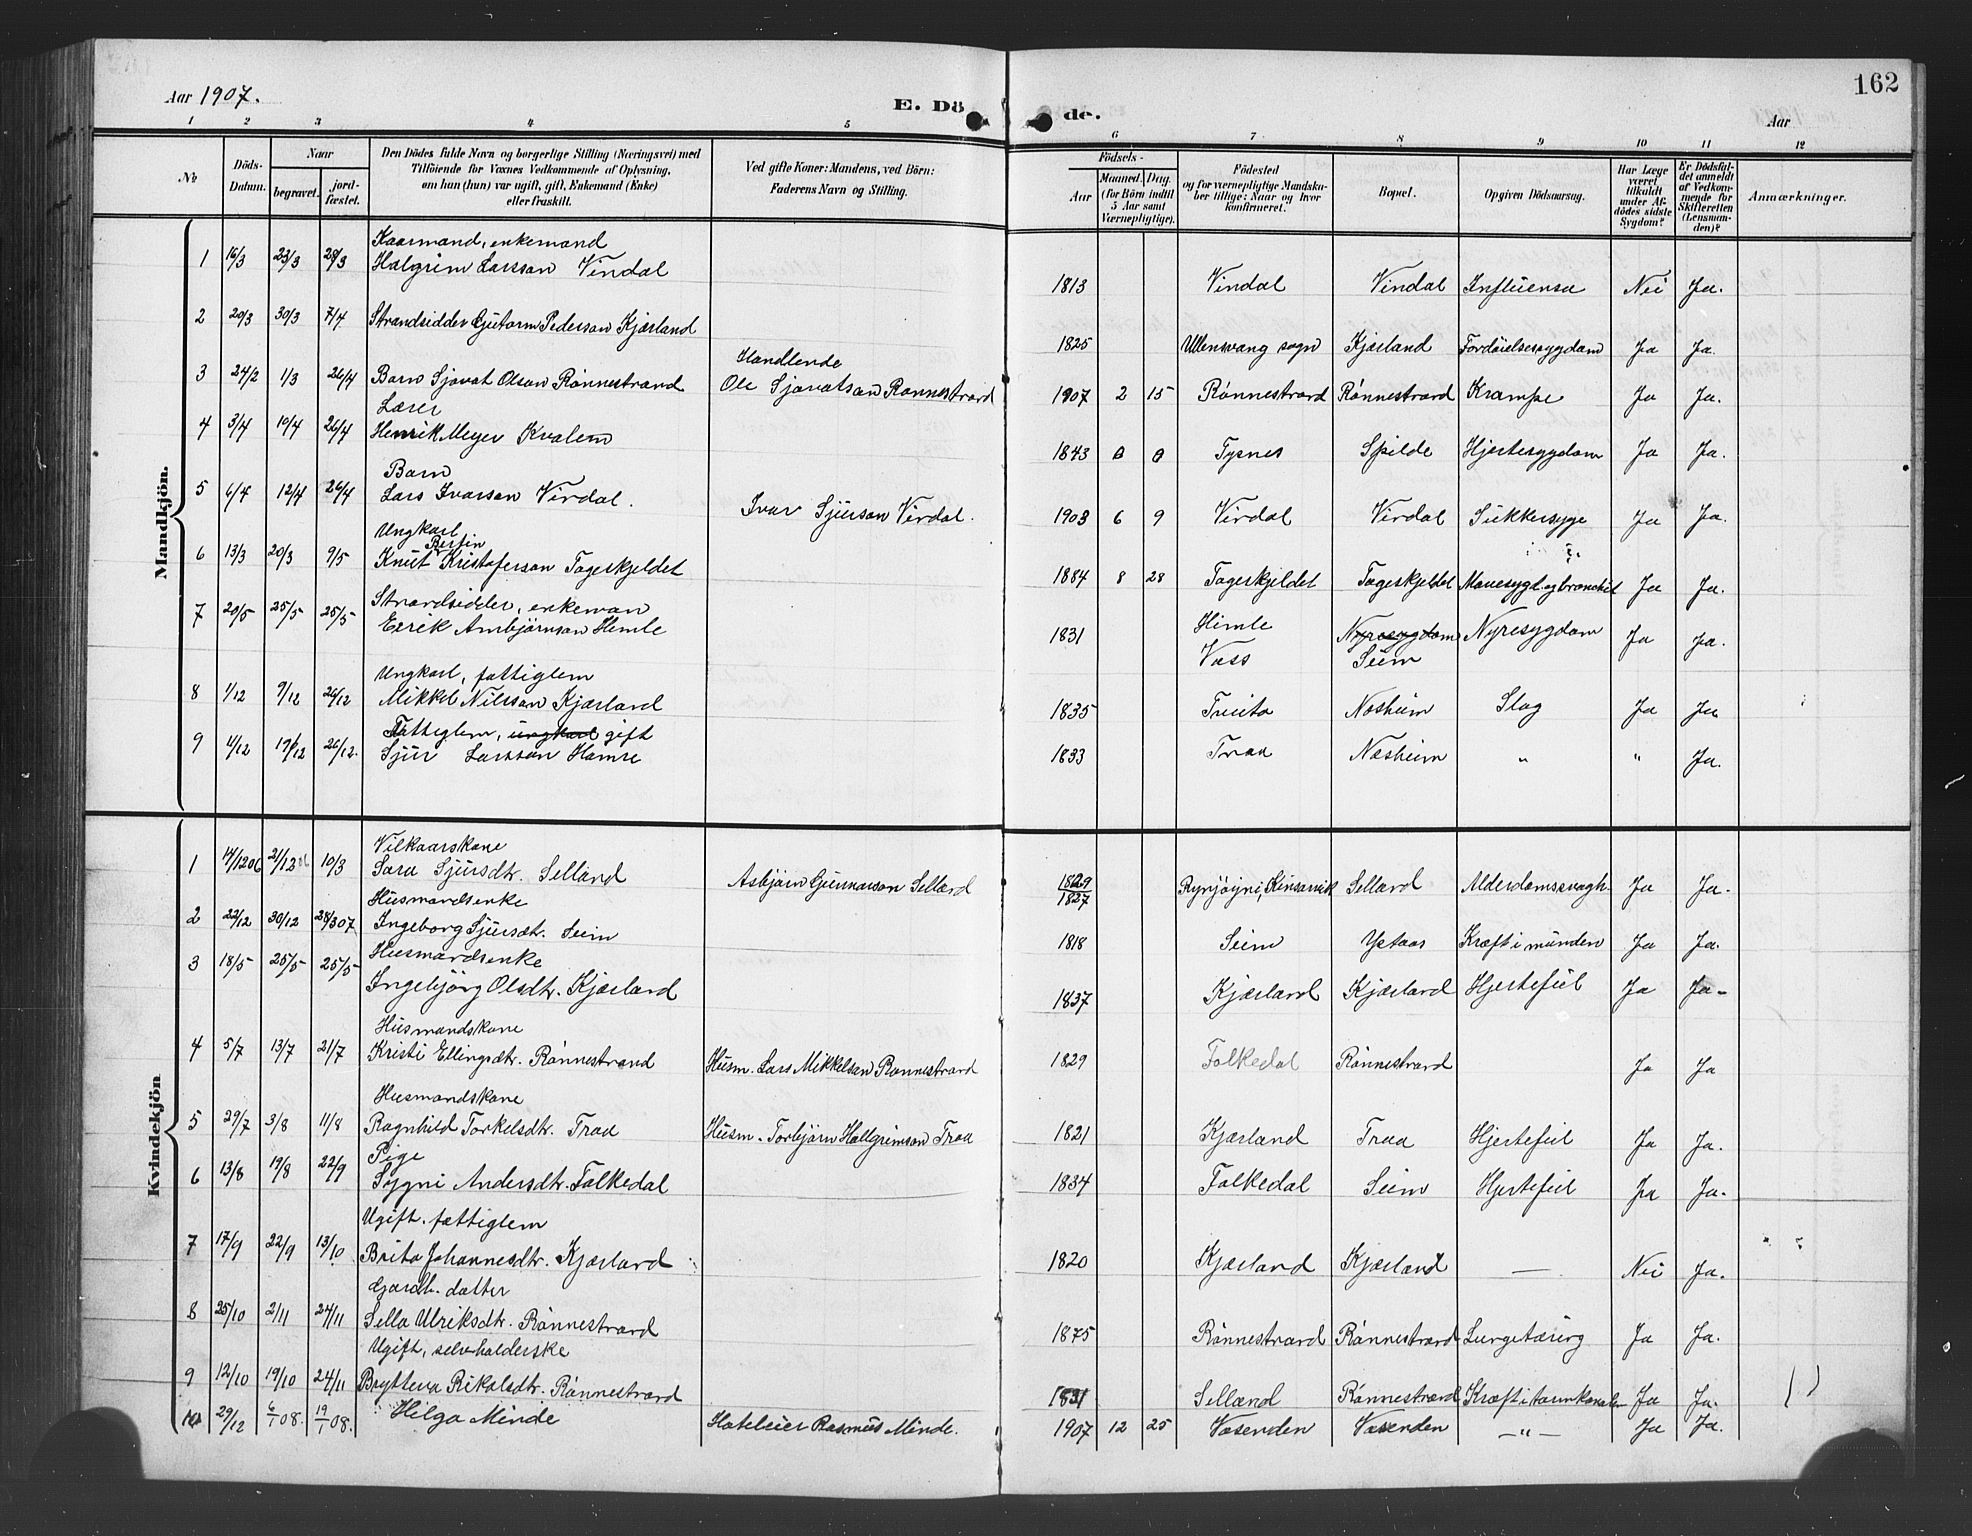 Aar 1907.
E. Dö de.
Aar
162
1 2 3 4 5 6 7 8 9 10 11 12
No
Döds-Datum.
Naar
begravet.
jord-fæstet.
Den Dödes fulde Navn og borgerlige Stilling (Næringsvei) med
Tilföiende for Voxnes Vedkommende af Oplysning,
om han (hun) var ugift, gift, Enkemand (Enke)
eller fraskilt.
Ved gifte Koner: Mandens, ved Börn:
Faderens Navn og Stilling.
Födsels-
Aar
Maaned. Dag.
(for Börn indtil
5 Aar samt
Værnepligtige).
Födested
og for værnepligtige Mandska-
ber tillige: Naar og hvor
konfirmeret.
Bopæl.
Opgiven Dödsaarsag.
Har Læge
været
tilkaldt
under Af-
dödes sidste
Sygdom?
Er Dödsfal-
det anmeldt
af Vedkom-
mende for
Skifteretten
(Lensman-
den)?
Anmærkninger.
Mandkjön.
Kaarmand, enkemand
1 16/3 23/3 28/3 Halgrim Larsson Vindal 1813 Vindal Vindal Influensa Nei Ja.
2 20/3 30/3 7/4 Strandsidder Gutorm Pederson Kjærland 1825 Ullensvang sogn Kjærland Fordöielsessygdom Ja Ja.
Handlende
3 24/2 1/3 26/4 Barn Sjovat Olson Rönnestrand Ole Sjovatson Rønnestrand 1907 2 15 Rönnestrand Rönnestrand Krampe Ja Ja.
Lærer
4 3/4 10/4 26/4 Henrik Meyer Kvalem 1843 0 0 Tysnes Spilde Hjertesygdom Ja Ja.
Barn
5 6/4 12/4 26/4 Lars Ivarson Virdal. Ivar Sjurson Virdal. 1903 6 9 Virdal Virdal Sukkersyge Ja Ja.
Ungkarl
Bertin
6 13/3 20/3 9/5 Knut Kristoferson Tageskjeldet 1884 8 28 Tageskjeldet Tageskjeldet Mavesygd. og bronchit Ja Ja.
Strandsidder, enkeman
7 20/5 25/5 25/5 Eirik Ambjörnson Himle 1831 Himle Voss Nyresygdom Seim Nyresygdom Ja Ja.
Ungkarl, fattiglem
8 1/12 9/12 26/12 Mikkel Nilsson Kjærland 1835 Tveito Næsheim Slag Ja Ja
Fattiglem, ungkarl gift
9 4/12 19/12 26/12. Sjur Larsson Hamre 1833 Traa Næsheim " " Ja.
Kvindekjön
Vilkaarskone
1 14/12 06 21/12 06 10/3 Sara Sjursdtr. Selland Asbjörn Gunnarson Selland 1829 1827 Kinsarvik Selland Alderdomssvagh. Ja Ja.
Husmandsenke
2 22/12 30/12 28/3 07 Ingeborg Sjursdtr. Seim 1818 Seim Ystaas Kræft i munden Ja Ja.
Husmandsenke
3 18/5 25/5 25/5 Ingebjörg Olsdtr. Kjærland 1837 Kjærland Kjærland Hjertefeil Ja Ja-
Husmandskone
4 5/7 13/7 21/7 Kristi Ellingsdtr. Rönnestrand Husm. Lars Mikkelson Rønnestrand 1829 Folkedal Rönnestrand Ja Ja
Husmandskone
5 29/7 3/8 11/8 Ragnhild Torkelsdtr. Traa Husm. Torbjörn Hallgrimson Traa 1821 Kjærland Traa Hjertefeil Ja Ja.
Pige
6 13/8 19/8 22/9 Sygni Andersdtr. Folkedal 1834 Folkedal Seim Hjertefeil Ja Ja.
Ugift. fattiglem
7 17/9 22/9 13/10 Brita Johannesdtr. Kjærland 1820 Kjærland Kjærland — Nei Ja.
Gardb. datter
8 25/10 2/11 24/11 Sella Ulriksdtr. Rönnestrand 1875 Rönnestrand Rönnestrand Lungetæring Ja Ja.
Ugift, selvholderske
9 12/10 19/10 24/11 Bryteva Rikolsdtr. Rönnestrand 1831 Selland Rönnestrand Kræft i tarmkanalen Ja Ja.
10 29/12 6/1 08. 19/1 08. Helga Minde Hoteleier Rasmus Minde. 1907 12 25 Vasenden Vasenden —"— Ja Ja.